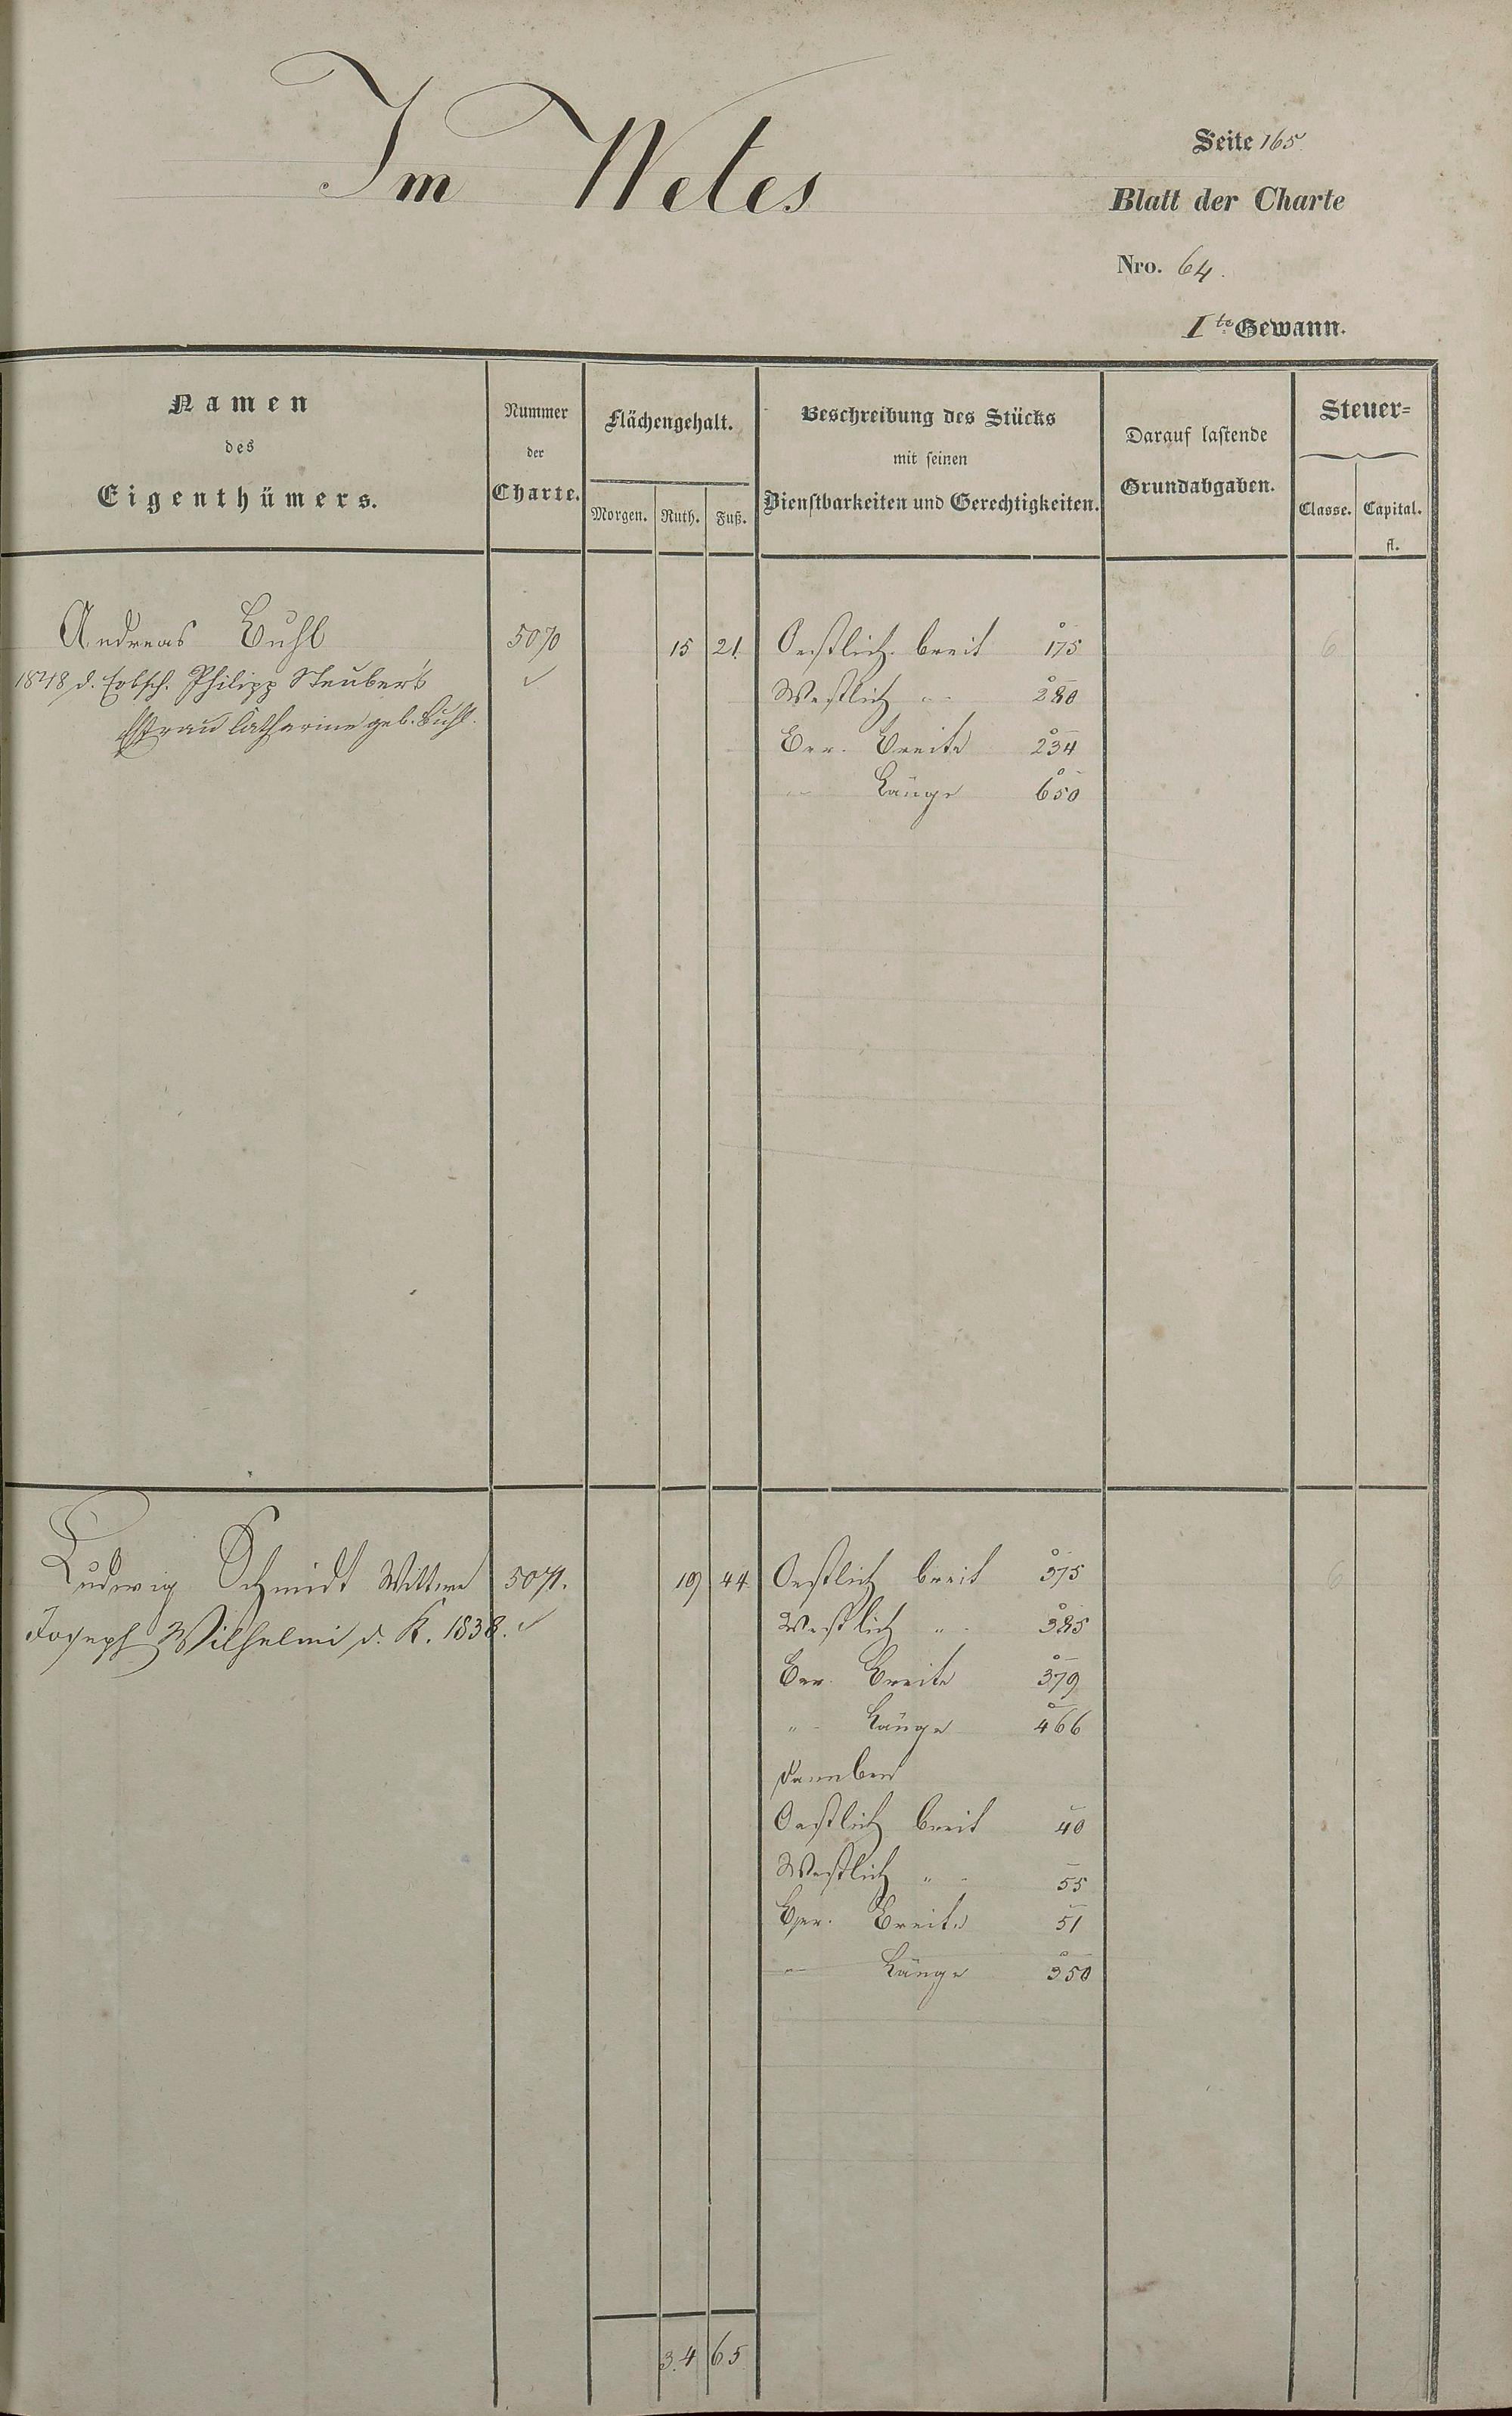 Im Wetes
Seite 165
Blatt der Charte
Nro. 64.
I te Gewann.
Namen
des
Eigenthümers.
Nummer
der
Charte.
Flächengehalt.
Morgen. Ruth. Fuß.
Beschreibung des Stücks
mit seinen
Dienstbarkeiten und Gerechtigkeiten.
Darauf lastende
Grundabgaben.
Steuer=
Classe. Capital.
fl.
Andreas Buhl 5070 15 21. Oestlich breit 175 6
1848 d. Erbsch. Philipp Steuber's ✓ Westlich " 280
Ehfrau Catharine geb. Buhl. Ber. Breite 234
" Länge 650
Ludwig Schmidt Wittwe 5071. 19 44 Oestlich breit 375 6
Joseph Wilhelmi d. K. 1838. ✓ Westlich " 385
Ber. Breite 379
" Länge 466
Oestlich breit 40
Westlich " 55
Ber. Breite 51
" Länge 350
34 65